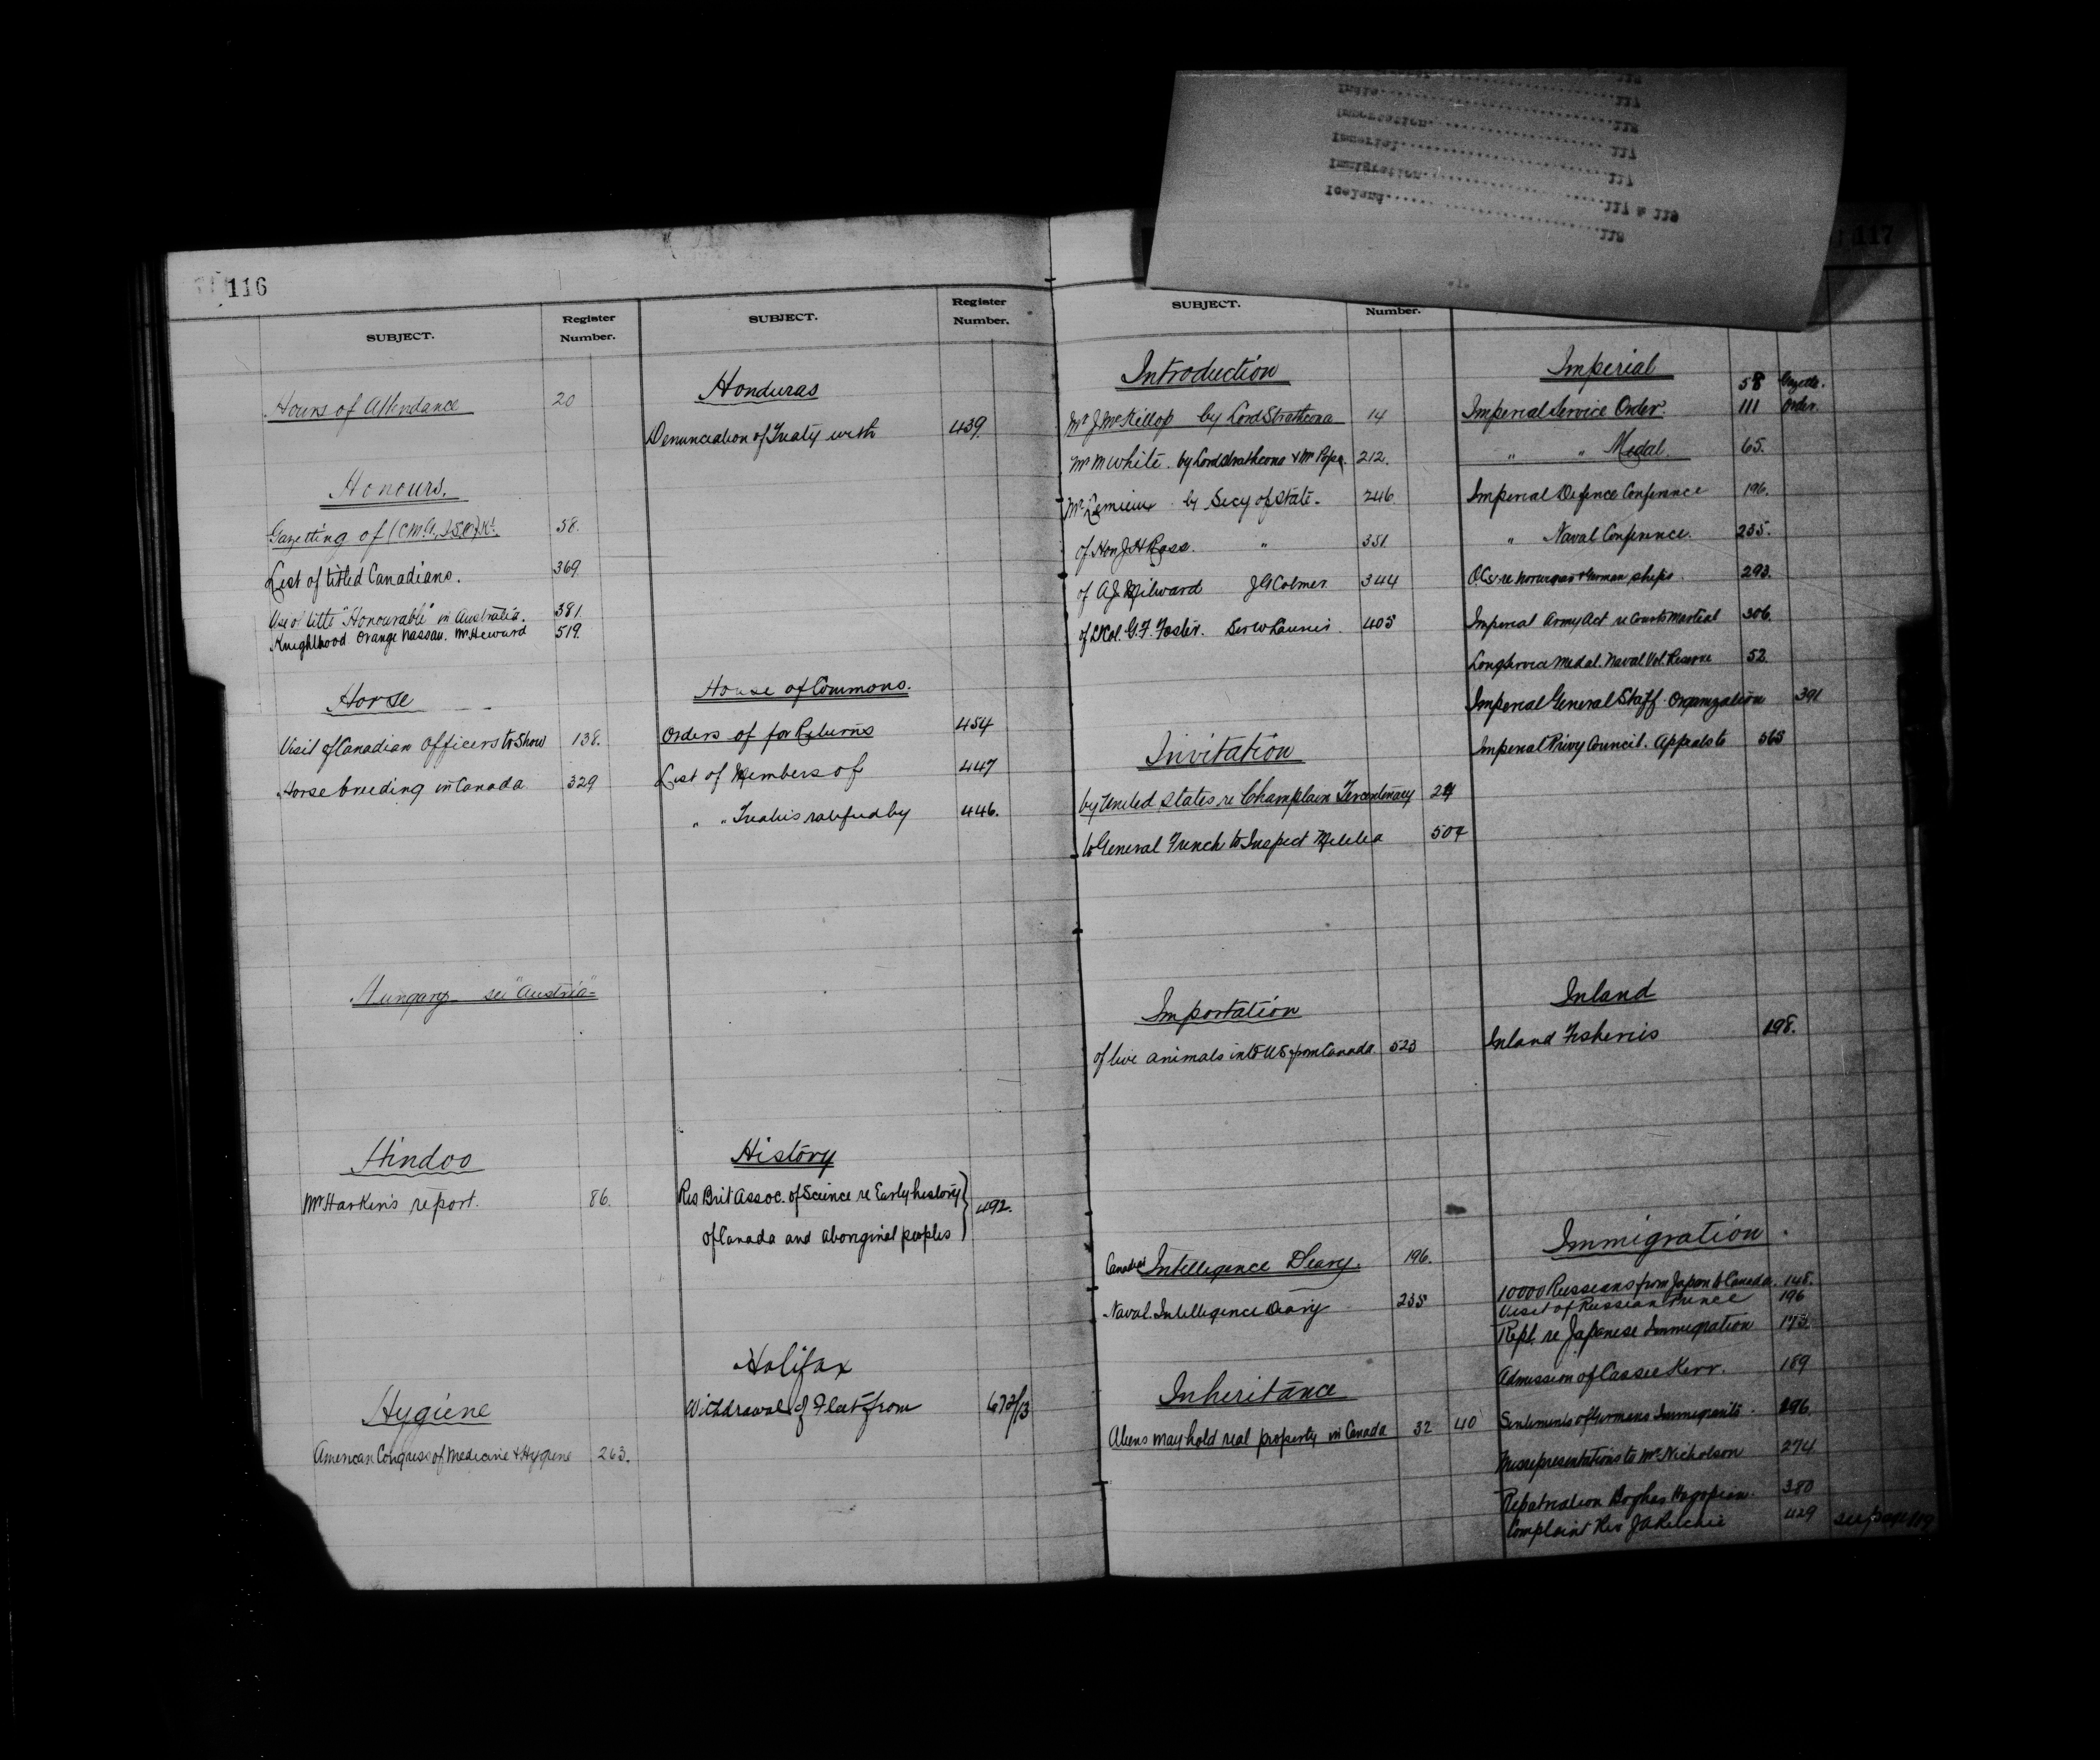 116
SUBJECT.
Register Number.
Hours of Attendance 20
Honours.
Gazetting of (C.M.G., I.S.O.) Kt. 58.
List of titled Canadians. 369.
Use of title "Honourable" in Australia. 381
Knighthood Orange Nassau. Mr Heward 519.
Horse
Visit of Canadian Officers to Show 138.
Horse breeding in Canada 329
Hungary see "Austria"
Hindoo
Mr Harkin's report. 86.
Hygiene
American Congress of Medicine & Hygiene 263.
SUBJECT.
Register Number.
Honduras
Denunciation of Treaty with 439.
House of Commons.
Orders of for Returns 454
List of Members of 447
" " Treaties ratified by 446.
History
Res Brit Assoc. of Science re Early history
of Canada and aboriginal peoples 492.
Halifax
Withdrawal of Fleet from 672/13
117
SUBJECT.
Number.
Introduction
Mr J McKillop by Lord Strathcona 14
Mr M White. by Lord Strathcona & Mr Pope. 212.
Mr Lemieux by Secy of State. 246
of Hon J H Ross. " 351
of A J Milward J G Colmer 344
of Lt Col. G. F. Foster. Sir W Laurier. 405
Invitation
by United States re Champlain Tercentenary
to General French to Inspect Militia 507
Importation
of live animals into US from Canada 523
Canadian Intelligence Diary. 196.
Naval Intelligence Diary 235
Inheritance
Aliens may hold real property in Canada 32 40
Imperial
58 Gazette.
Imperial Service Order. 111 Order.
" " Medal. 65.
Imperial Defence Conference 196.
" Naval Conference. 235.
O.C.s re Norwegian & German ships. 293.
Imperial Army Act re Courts Martial 306.
Long Service Medal. Naval Vol. Reserve 52.
Imperial General Staff. Organization 391
Imperial Privy Council. Appeals to 565
Inland
Inland Fisheries 198.
Immigration
10000 Russians from Japan to Canada. 148.
Visit of Russian Prince 196
Rept. re Japanese Immigration 173.
Admission of Cassie Kerr. 189
Sentiments of Germans Immigrants. 296.
Misrepresentations to Mr Nicholson 274
Repatriation Boghas Hagopian. 380
Complaint Rev J A Ritchie 429 see page 119
Iceland 119
Immigration 117 & 119
Imperial 117
Importation 117
India 118
117